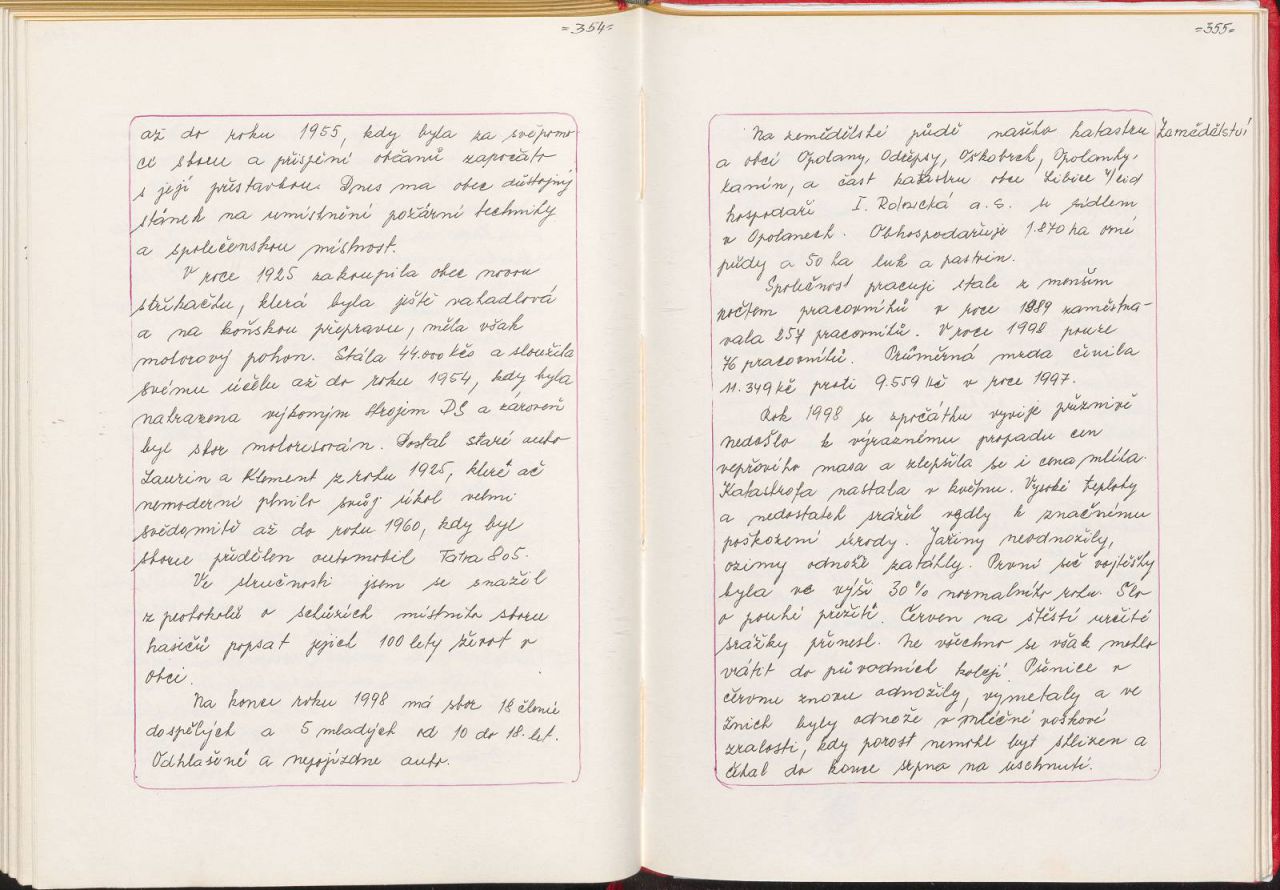 =354=
až do roku 1955, kdy byla za svépomo
ci sboru a přispění občanů započato
s její přístavbou. Dnes ma obec důstojný
stánek na umístnění požární techniky
a společenskou místnost.
V roce 1925 zakoupila obec novou
stříkačku, která byla ještě vahadlová
a na koňskou přepravu, měla však
motorový pohon. Stála 44.000 kčo a sloužila
svému účelu až do roku 1954, kdy byla
nahrazena výkoným strojem DS a zároveň
byl sbor motorisován. Dostal staré auto
Laurin a Klement z roku 1925, které ač
nemoderní plnilo svůj úkol velmi
svědomitě až do roku 1960, kdy byl
sboru přidělen automobil Tatra 805.
Ve stručnosti jsem se snažil
z protokolů o schůzích místního sboru
hasičů popsat jejich 100 letý život v
obci.
Na konci roku 1998 má sbor 18 členů
dospělých a 5 mladých od 10 do 18. let.
Odhlašéné a nepojízdne auto.
=355=
Zemědělství
Na zemědělské půdě našeho katastru
a obcí Opolany, Odřepsy, Oskobrh, Opolánky,
Kanín, a část katastru obce Libice n/cid
hospodaří I. Rolnická a.s. se sídlem
v Opolanech. Obhospodařuje 1.870 ha orné
půdy a 50 ha luk a pastvin.
Společnost pracuje stale z menším
počtem pracovníků v roce 1989 zaměstna-
vala 257 pracovníků. V roce 1998 pouze
76 pracovníků. Průměrná mzda činila
11.349 kč proti 9.559 kč v roce 1997.
Rok 1998 se zpočátku vyvíjel příznivě
nedošlo k výraznému propadu cen
vepřového masa a zlepšila se i cena mléka.
Katastrofa nastala v květnu. Vysoké teploty
a nedostatek srážek vedly k značnému
poškození úrody. Jařiny neodnožily,
ozimy odnože zatáhly. První seč vojtěšky
byla ve výši 30% normálního roku. Šlo
o pouhé přežití. Červen na štěstí určité
srážky přinesl. Ne všechno se však mohlo
vrátit do původních kolejí. Pšenice v
červnu znovu odnožily, vymetaly a ve
žních byly odnože v mléčné voškové
zralosti, kdy porost nemohl být sklizen a
čekal do konce srpna na uschnutí.